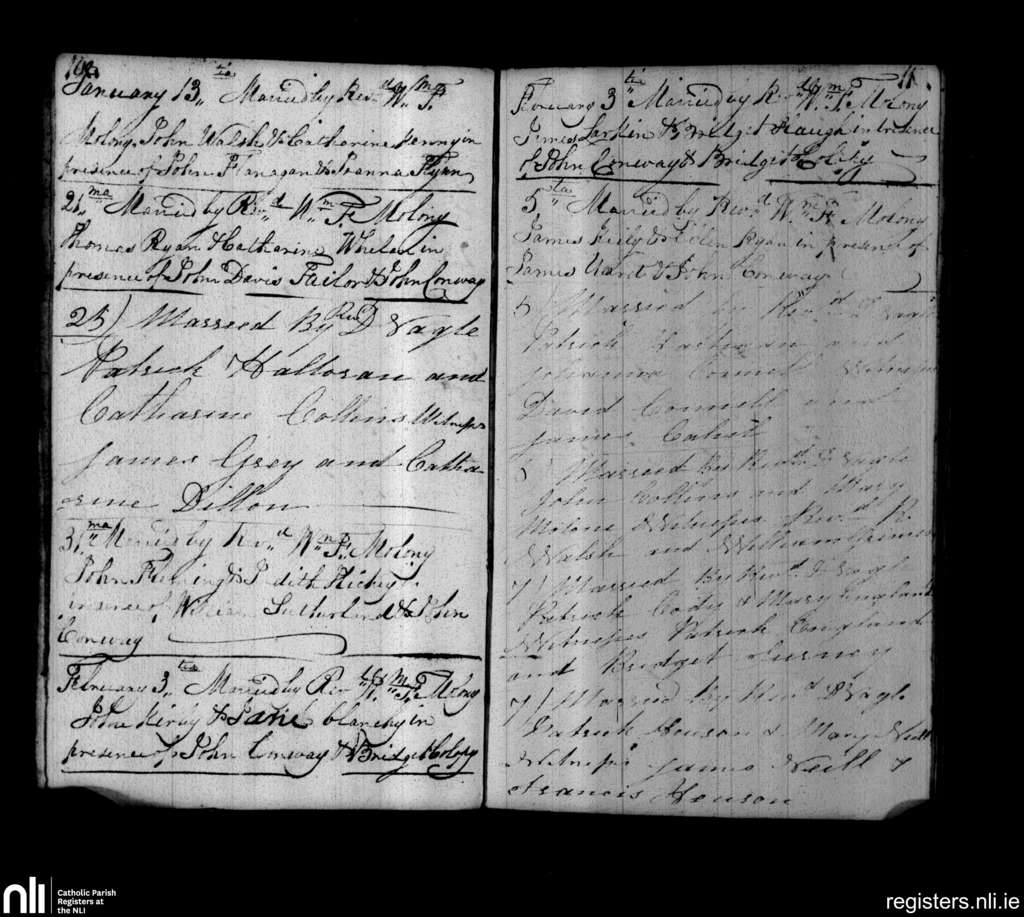 10
January 13 tia Maried by Revd Wm F
Molony John Walsh & Catharine
presence of John Flanagan & Joanna Flynn
21 ma Maried by Revd Wm F Molony
Thomas Ryan & Catharine Whelan in
presence of John Davis Tailor & John Conway
25) Marreed By Revd D Nagle
Patrick Halloran and
Catharine Collins Witness
James Grey and Catha
rine Dillon
31 ma Maried by Revd Wm F. Molony
John Fleming & Judith Hickey
William Sutherland & John
Conway
February 3 tia Maried by Revd Wm F. Molony
John Kirby & Jane in
presence of John Conway & Bridget
11
February 3 tia Maried by Revd Wm F. Molony
James Larkin & Bridget Haugh in presence
of John Conway & Bridget
5 ta Maried by Revd Wm F Molony
James & Ellen Ryan in presence of
James Ward & John Conway
5) Marreed by Revd D Nagle
Patrick and
Johanna Connell Witness
David Connell and
James
Marreed By Revd D Nagle
John Collins and Mary
Molone Witness Revd P.
Walsh and William
7) Marreed By Revd D Nagle
Patrick Cody & Mary England
Witness Patrick England
and Bridget
7) Marreed By Revd D Nagle
Patrick Henson & Mary Neill
Witness James Neill &
Francis Henson
nli
Catholic Parish
Registers at
the NLI
registers.nli.ie